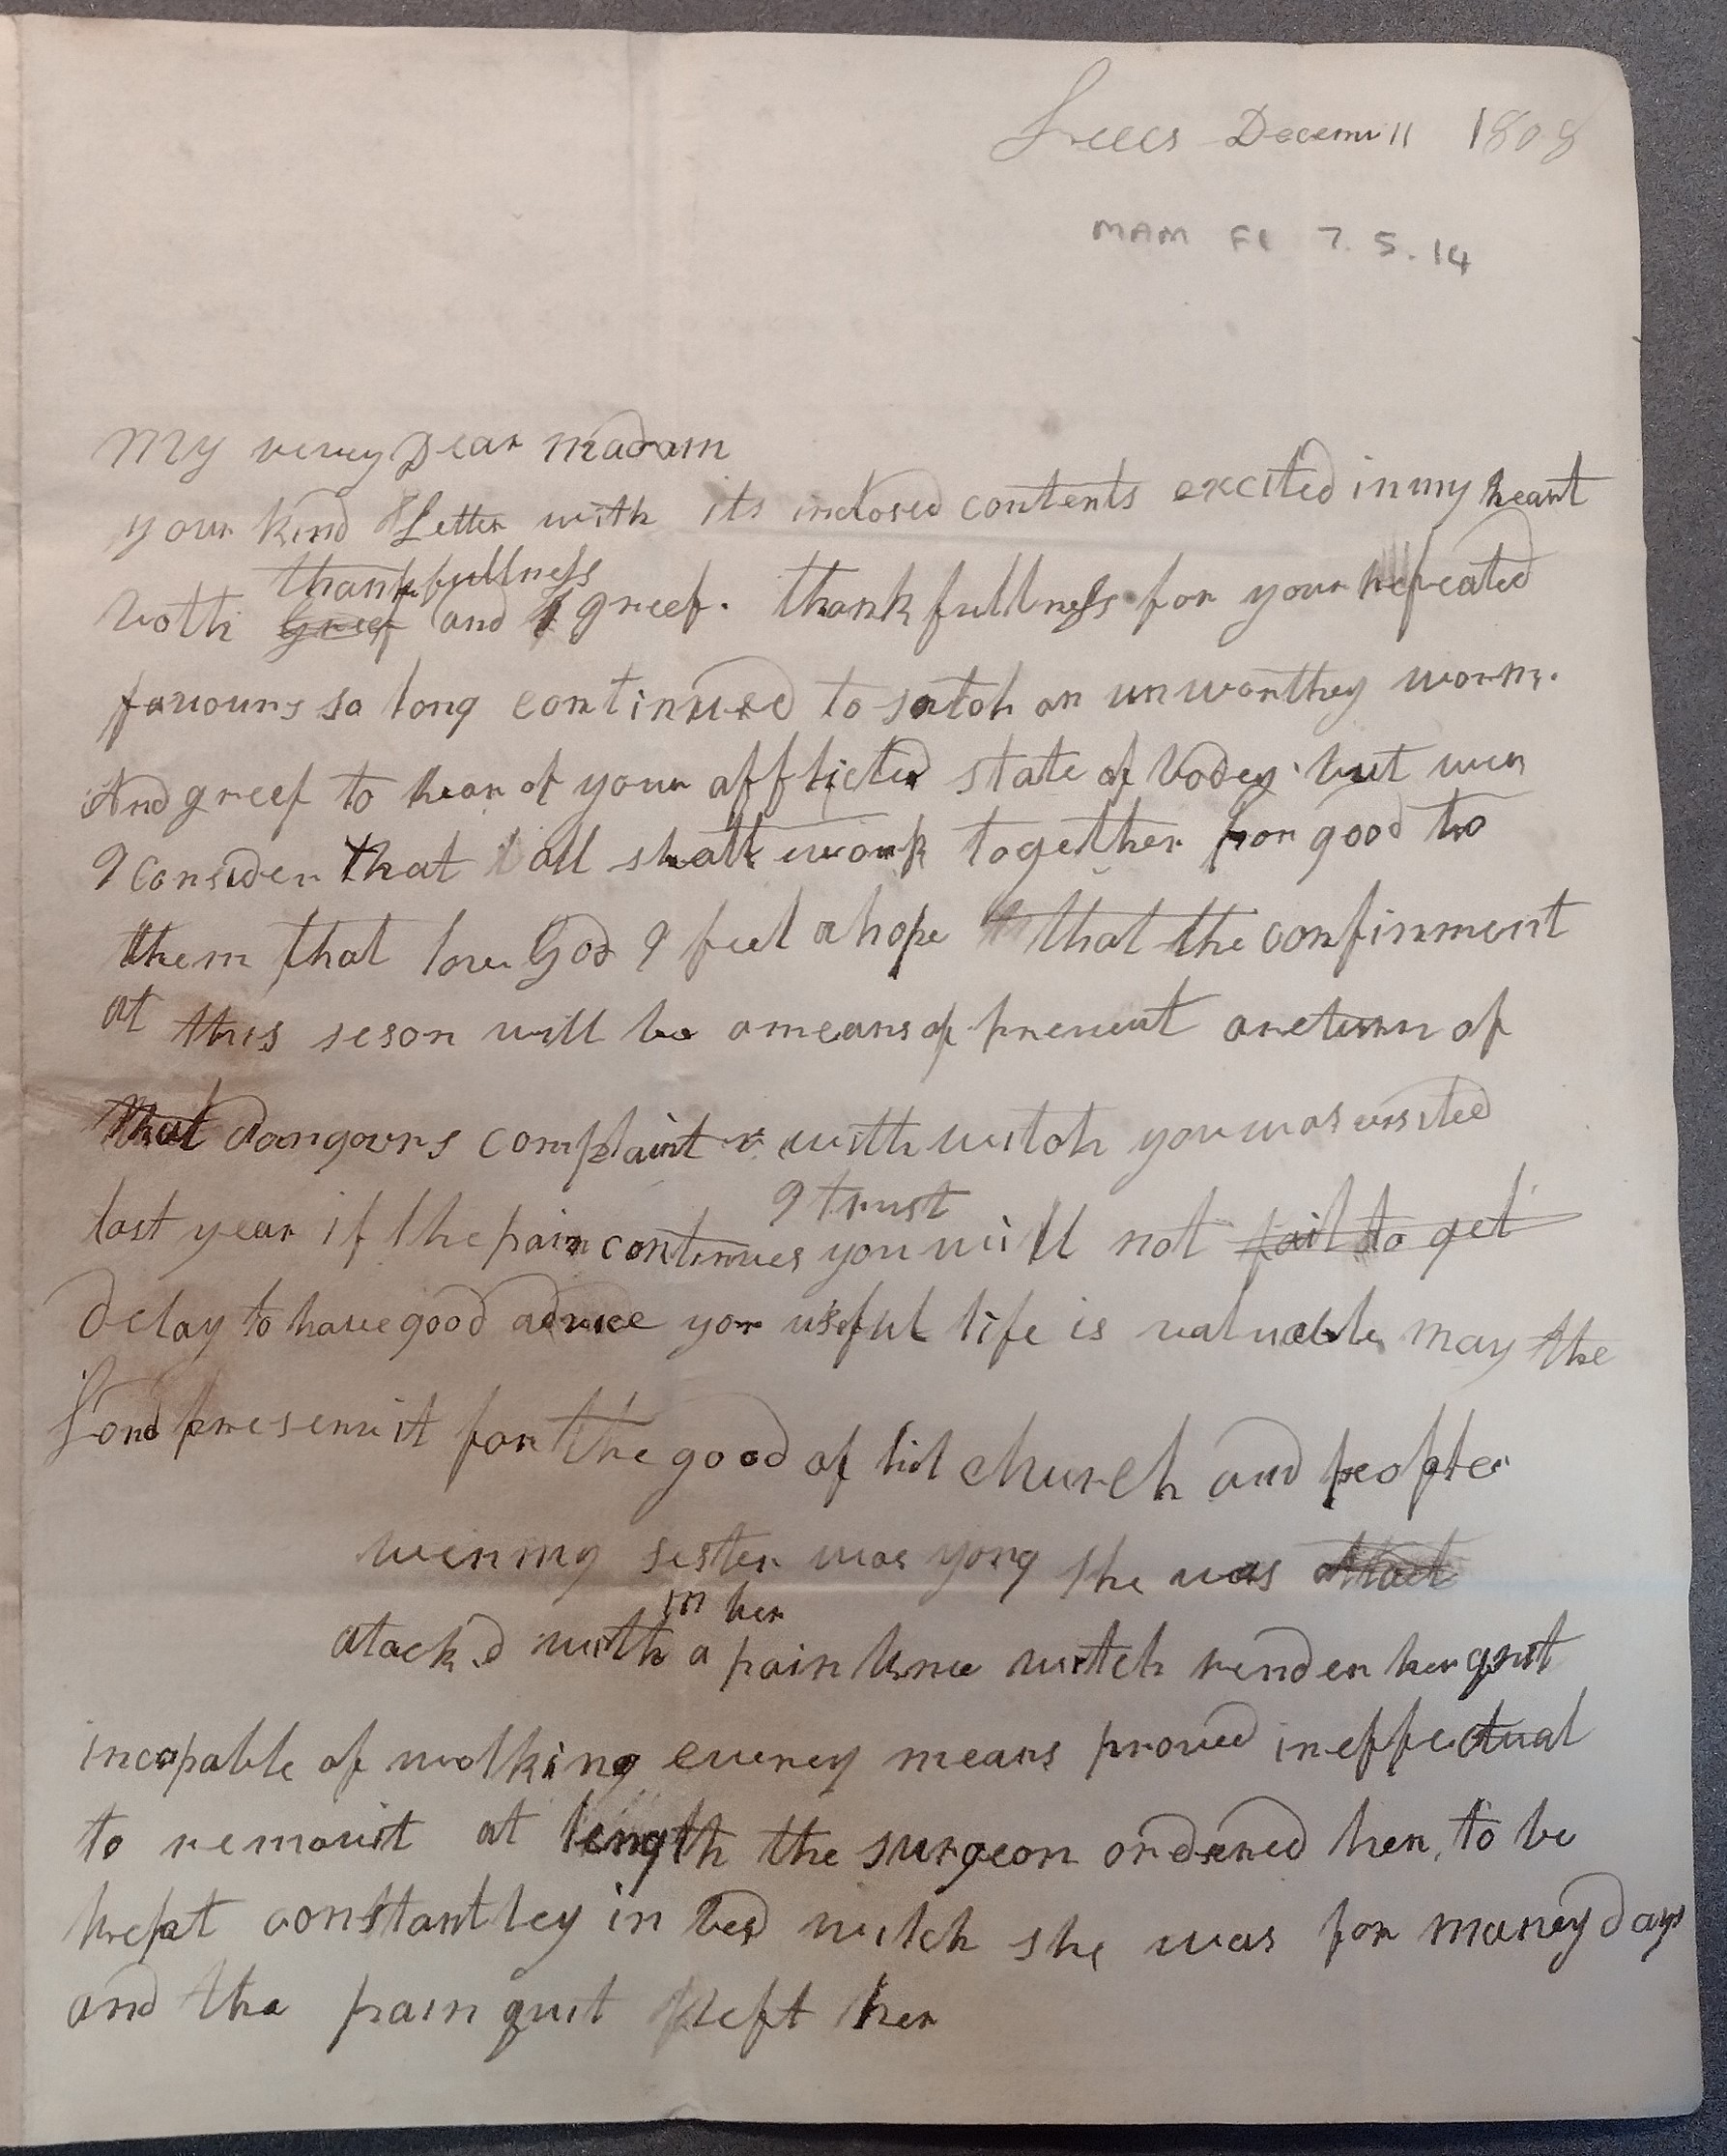 Leees Decemr 11 1808
MAM Fl 7.5.14
My verey Dear Madam
your kind Letter with its inclosed contents excited in my heart
thankfullness
both Greef and greef. thankfullness for your repeated
favours so long continued to sutch an unworthey worm.
And greef to hear of your afflicted state of bodey but wen
I consider that all shall work together for good to
them that love God I feel a hope that the confinment
at this seson will be a means of prevent a return of
that dangours complaint with witch you was visited
I trust
last year if the pain continues you will not fail to get
delay to have good advice your usful life is valuable may the
Lord preserv it for the good of his church and people
wen my sister was yong she was attact
in her
atack.d with a pain knee witch render her quit
incapable of walking everey means proved ineffectual
to remov it at length the surgeon ordered her to be
kept constantley in bed witch she was for maney days
and the pain quit left her